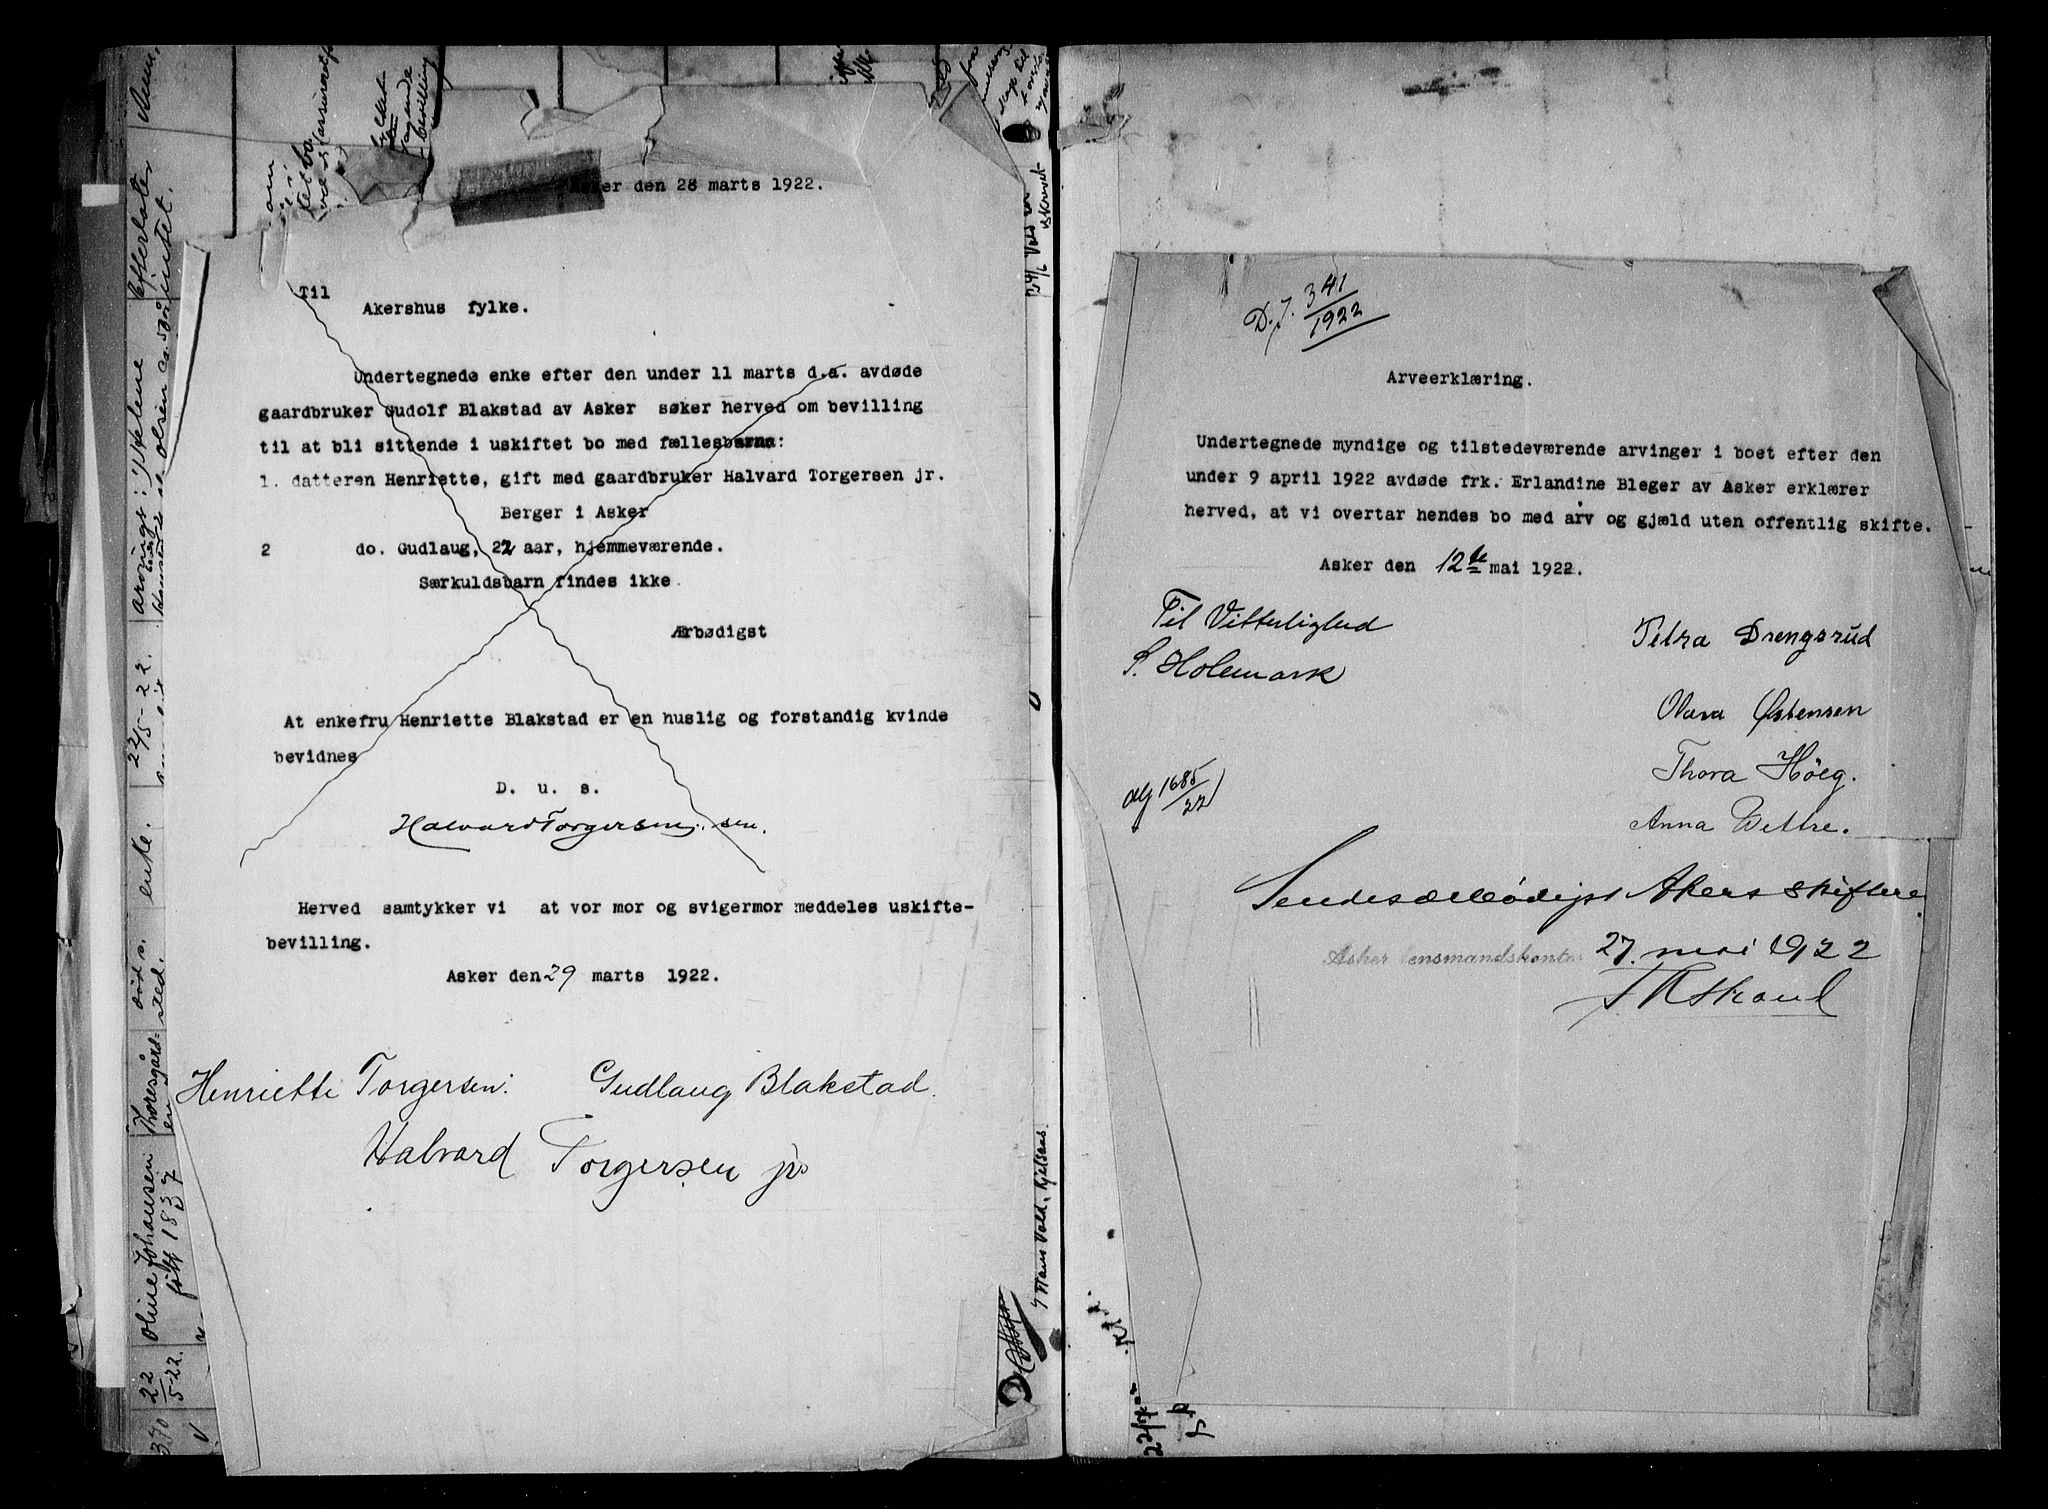 den 28 marts 1922.
Til
Akershus fylke.
Undertegnede enke efter den under 11 marts d.a. avdøde
gaardbruker Gudolf Blakstad av Asker søker herved om bevilling
til at bli sittende i uskiftet bo med fællesbarna:
1. datteren Henriette, gift med gaardbruker Halvard Torgersen jr.
Berger i Asker
2 do. Gudlaug, 22 aar, hjemmeværende.
Særkuldsbarn findes ikke
Ærbødigst
At enkefru Henriette Blakstad er en huslig og forstandig kvinde
bevidnes
D. u. s.
Halvard Torgersen sen.
Herved samtykker vi at vor mor og svigermor meddeles uskifte-
bevilling.
Asker den 29 marts 1922.
Henriette Torgersen. Gudlaug Blakstad.
Halvard Torgersen jr
370 22/5-22. Oline Johansen Thoresgård- død s. enke. 22/5-22. arvings: Efterlater
født 1837 en sted. intet.
Hans Vold, Kjelsaas
D. J. 341/1922
Arveerklæring.
Undertegnede myndige og tilstedeværende arvinger i boet efter den
under 9 april 1922 avdøde frk. Erlandine Bleger av Asker erklærer
herved, at vi overtar hendes bo med arv og gjæld uten offentlig skifte.
Asker den 12te mai 1922.
Til Vitterlighed
S. Holemark
Petra Drengsrud
Olava Østensen
Thora Höeg.
Anna Wettre.
1685/22
Sendes ærbødigst Akers skifterett
Asker lensmandskontor 27. mai 1922